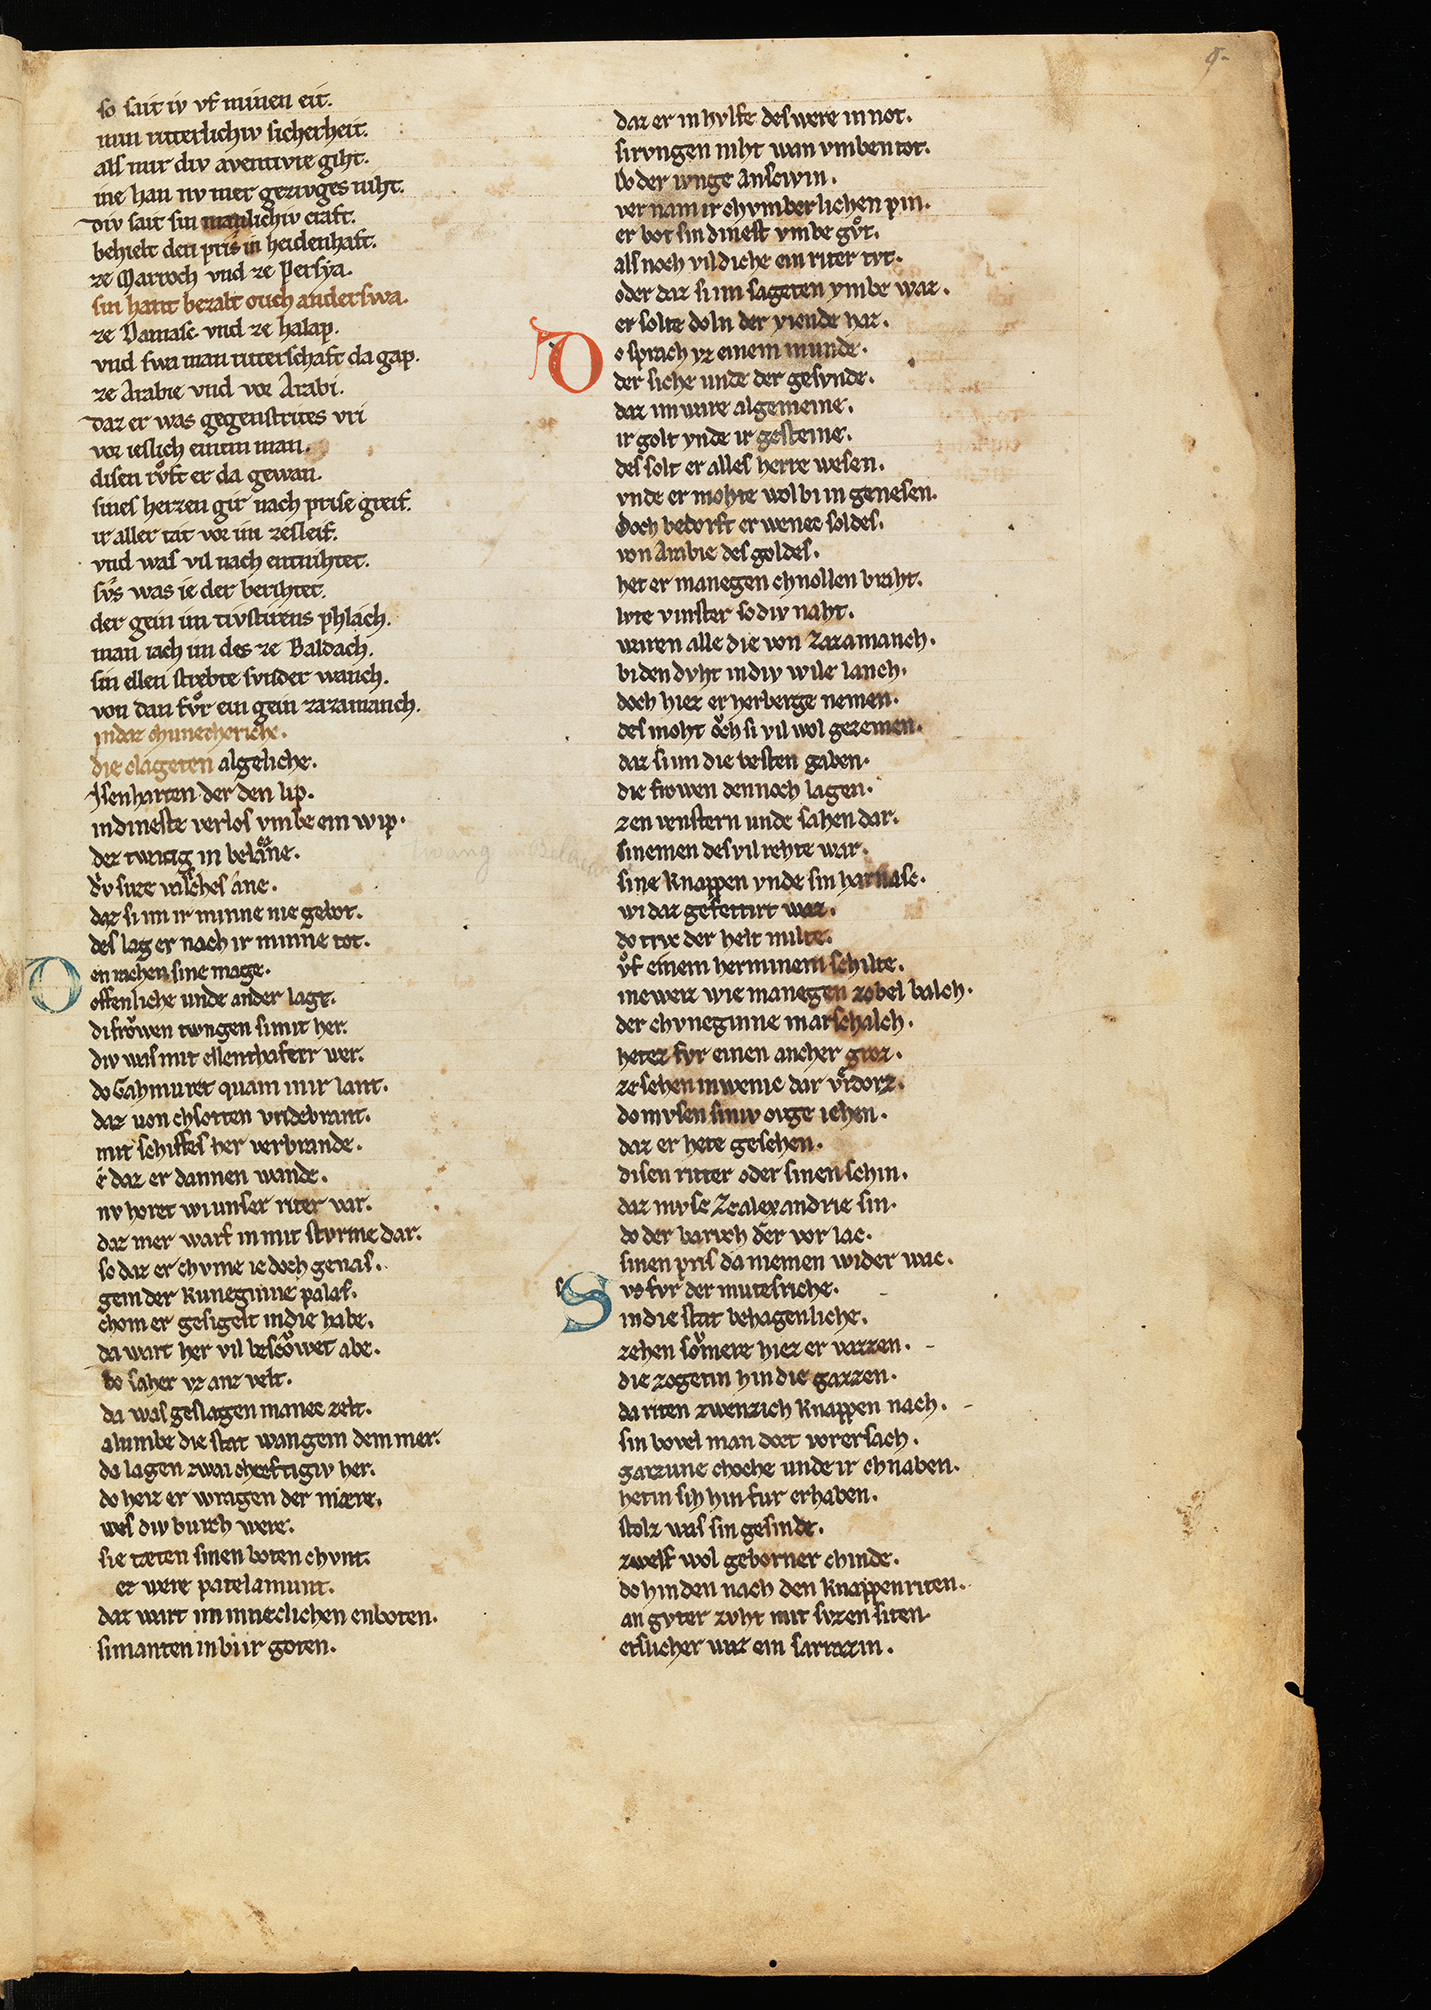 so sait iv vf minen eit.
min ritterlichiv sicherheit.
als mir div aventivre giht.
ine han nv mer gezivges niht.
Div sait sin manlichiv craft.
behielt den pris in heidenhaft.
ze Marroch vnd ze Persya.
sin hant bezalt ouch anderswa.
ze Damasc vnd ze halap.
vnd swa man ritterschaft da gap.
ze Arabie vnd vor Arabi.
Daz er was gegenstrites vri
vor ieslich einem man.
disen rvͦft er da gewan.
sines herzen gir nach prise greif.
ir aller tat vor im zesleif.
vnd was vil nach entnihtet.
svs was ie der berihtet.
der gein im tivstirens phlach.
man iach im des ze Baldach.
sin ellen strebte svnder wanch.
von dan fvͦr ein gein zazamanch.
in daz chunechriche.
die clageten algeliche.
Isenharten der den lip.
in dineste verlos vmbe ein wip.
dez twang in belacane.
dv suze valsches ane.
daz si im ir minne nie gebot.
des lag er nach ir minne tot.
Den rachen sine mage.
offenliche unde ander lage.
di frowen twngen si mit her.
div was mit ellenthafter wer.
do Gahmuret quam inir lant.
daz uon chsotten vridebrant.
mit schiffes her verbrande.
e daz er dannen wande.
nv horet wi unser riter var.
daz mer warf in mit stvrme dar.
so daz er chvme iedoch genas.
gein der kuneginne palas.
chom er gesigelt in die habe.
da wart her vil bescowet abe.
do saher vz anz velt.
da was geslagen manec zelt.
alumbe die stat wan gein dem mer.
da lagen zwai chreftigiv her.
do heiz er wragen der mære.
wes div burch were.
sie tæten sinen boten chvnt.
ez were patelamunt.
daz wart im inneclichen enboten.
si manten in bi ir goten.
daz er in hvlfe des were in not.
si rvngen niht wan vmben tot.
Do der ivnge Anscivin.
ver nam ir chvmberlichen pin.
er bot sin dinest vmbe gvͦt.
als noch vil diche ein riter tvt.
oder daz si im sageten vmbe waz.
er solte doln der viende haz.
Do sprach vz einem munde.
der siche unde der gesvnde.
daz im were al gemeine.
ir golt vnde ir gesteine.
des solt er alles herre wesen.
vnde er mohte wol bi in genesen.
Doch bedorft er wenec soldes.
von Arabie des goldes.
het er manegen chnollen braht.
lvte vinster so div naht.
wren alle die von Zazamanch.
bi den dvht in div wile lanch.
doch hiez er herberge nemen.
des moht och si vil wol gezemen.
daz si im die besten gaben.
die frowen dennoch lagen.
zen venstern unde sahen dar.
si nemen des vil rehte war.
sine knappen vnde sin harnasc.
wi daz gefeitirt waz.
do trvc der helt milte.
vͦf einem herminem schilte.
ine weiz wie manegen zobel balch.
der chvneginne marschalch.
hetez fvr einen ancher groz.
ze sehen in wenic dar vͦrdorz.
do mvsen siniv ovge iehen.
daz er hete gesehen.
disen ritter oder sinen schin.
daz mvse ze alexandrie sin.
do der barvch der vor lac.
sinen pris da niemen wider wac.
Svs fvr der mutes riche.
in die stat behagenliche.
zehen soͮmere hiez er vazzen.
die zogetin hin die gazzen.
da riten zwenzich knappen nach.
sin bovel man dort vor ersach.
garzune choche unde ir chnaben.
hetin sih hin fur erhaben.
stolz was sin gesinde.
zwelf wol geborner chinde.
do hinden nach den knappen riten.
an gvter zvht mit svzen siten.
etslicher waz ein sarrazin.